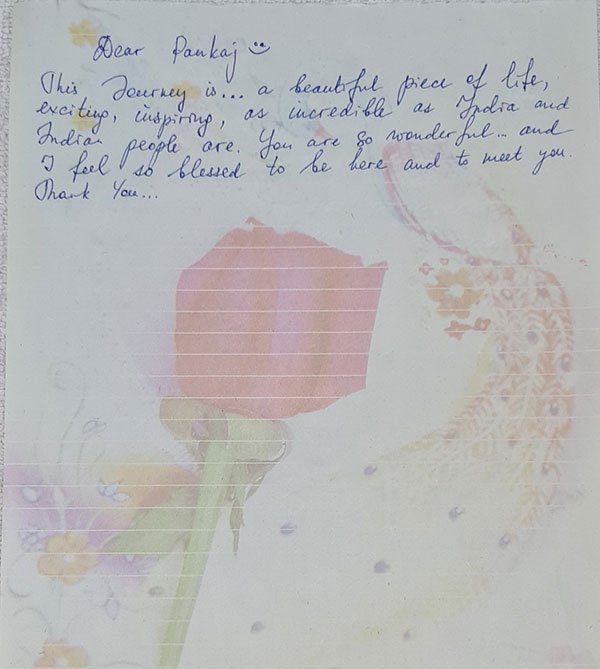 Dear Pankaj
This Journey is... a beautiful piece of life,
exciting, inspiring, as incredible as India and
Indian people are. You are so wonderful... and
I feel so blessed to be here and to meet you.
Thank You...